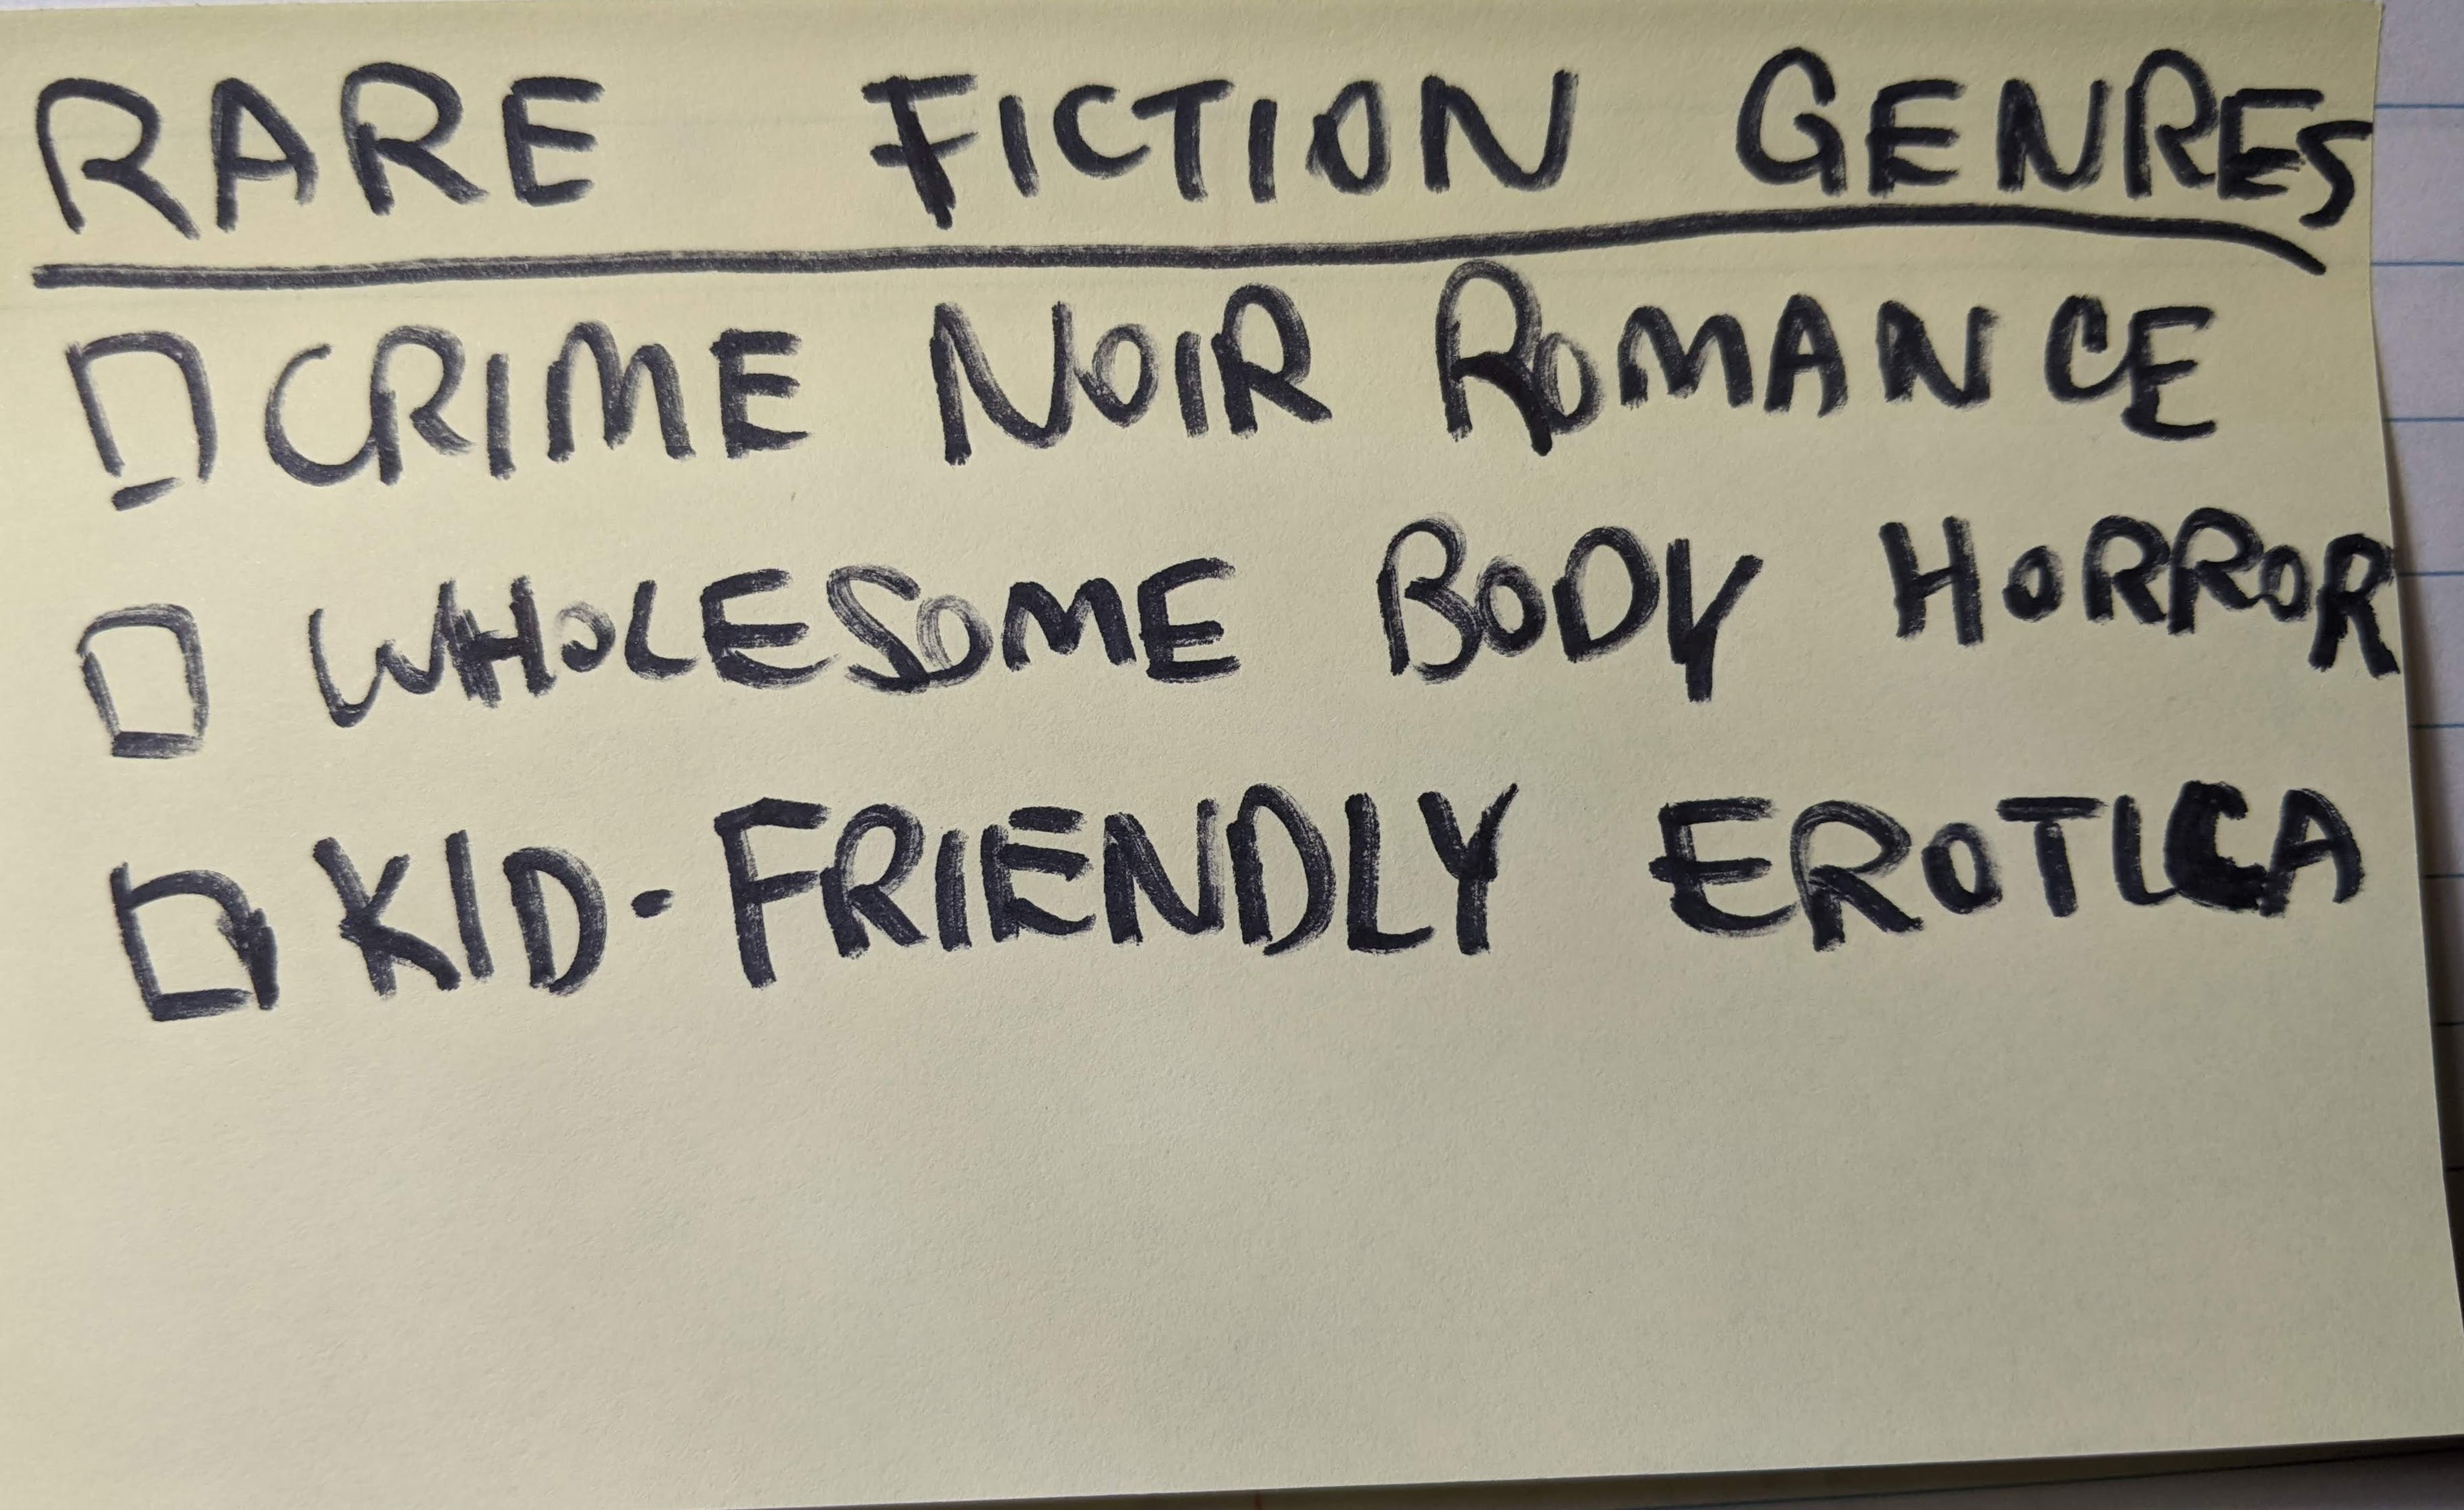 RARE FICTION GENRES
☐ CRIME NOIR ROMANCE
☐ WHOLESOME BODY HORROR
☐ KID-FRIENDLY EROTICA